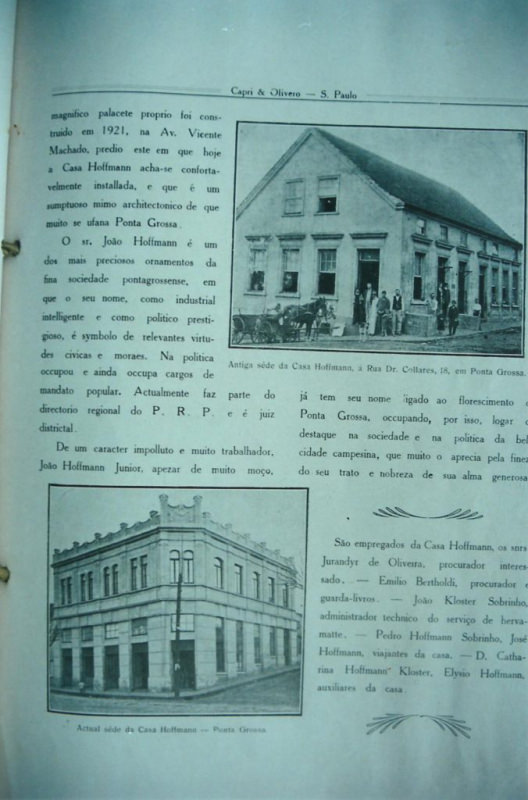 Capri & Olivero — S. Paulo
magnifico palacete proprio foi cons-
truido em 1921, na Av. Vicente
Machado, predio este em que hoje
a Casa Hoffmann acha-se conforta-
velmente installada, e que é um
sumptuoso mimo architectonico de que
muito se ufana Ponta Grossa.
O sr. João Hoffmann é um
dos mais preciosos ornamentos da
fina sociedade pontagrossense, em
que o seu nome, como industrial
intelligente e como politico presti-
gioso, é symbolo de relevantes virtu-
des civicas e moraes. Na politica
occupou e ainda occupa cargos de
mandato popular. Actualmente faz parte do
directorio regional do P. R. P. e é juiz
districtal.
De um caracter impolluto e muito trabalhador,
João Hoffmann Junior, apezar de muito moço,
Antiga séde da Casa Hoffmann, a Rua Dr. Collares, 18, em Ponta Grossa.
já tem seu nome ligado ao florescimento
Ponta Grossa, occupando, por isso, logar
destaque na sociedade e na politica da bel
cidade campesina, que muito o aprecia pela finez
do seu trato e nobreza de sua alma generosa
Actual séde da Casa Hoffmann — Ponta Grossa.
São empregados da Casa Hoffmann, os snrs.
Jurandyr de Oliveira, procurador interes-
sado. — Emilio Bertholdi, procurador
guarda-livros. — João Kloster Sobrinho,
administrador technico do serviço de herva-
matte. — Pedro Hoffmann Sobrinho, José
Hoffmann, viajantes da casa. — D. Catha-
rina Hoffmann Kloster, Elysio Hoffmann,
auxiliares da casa.